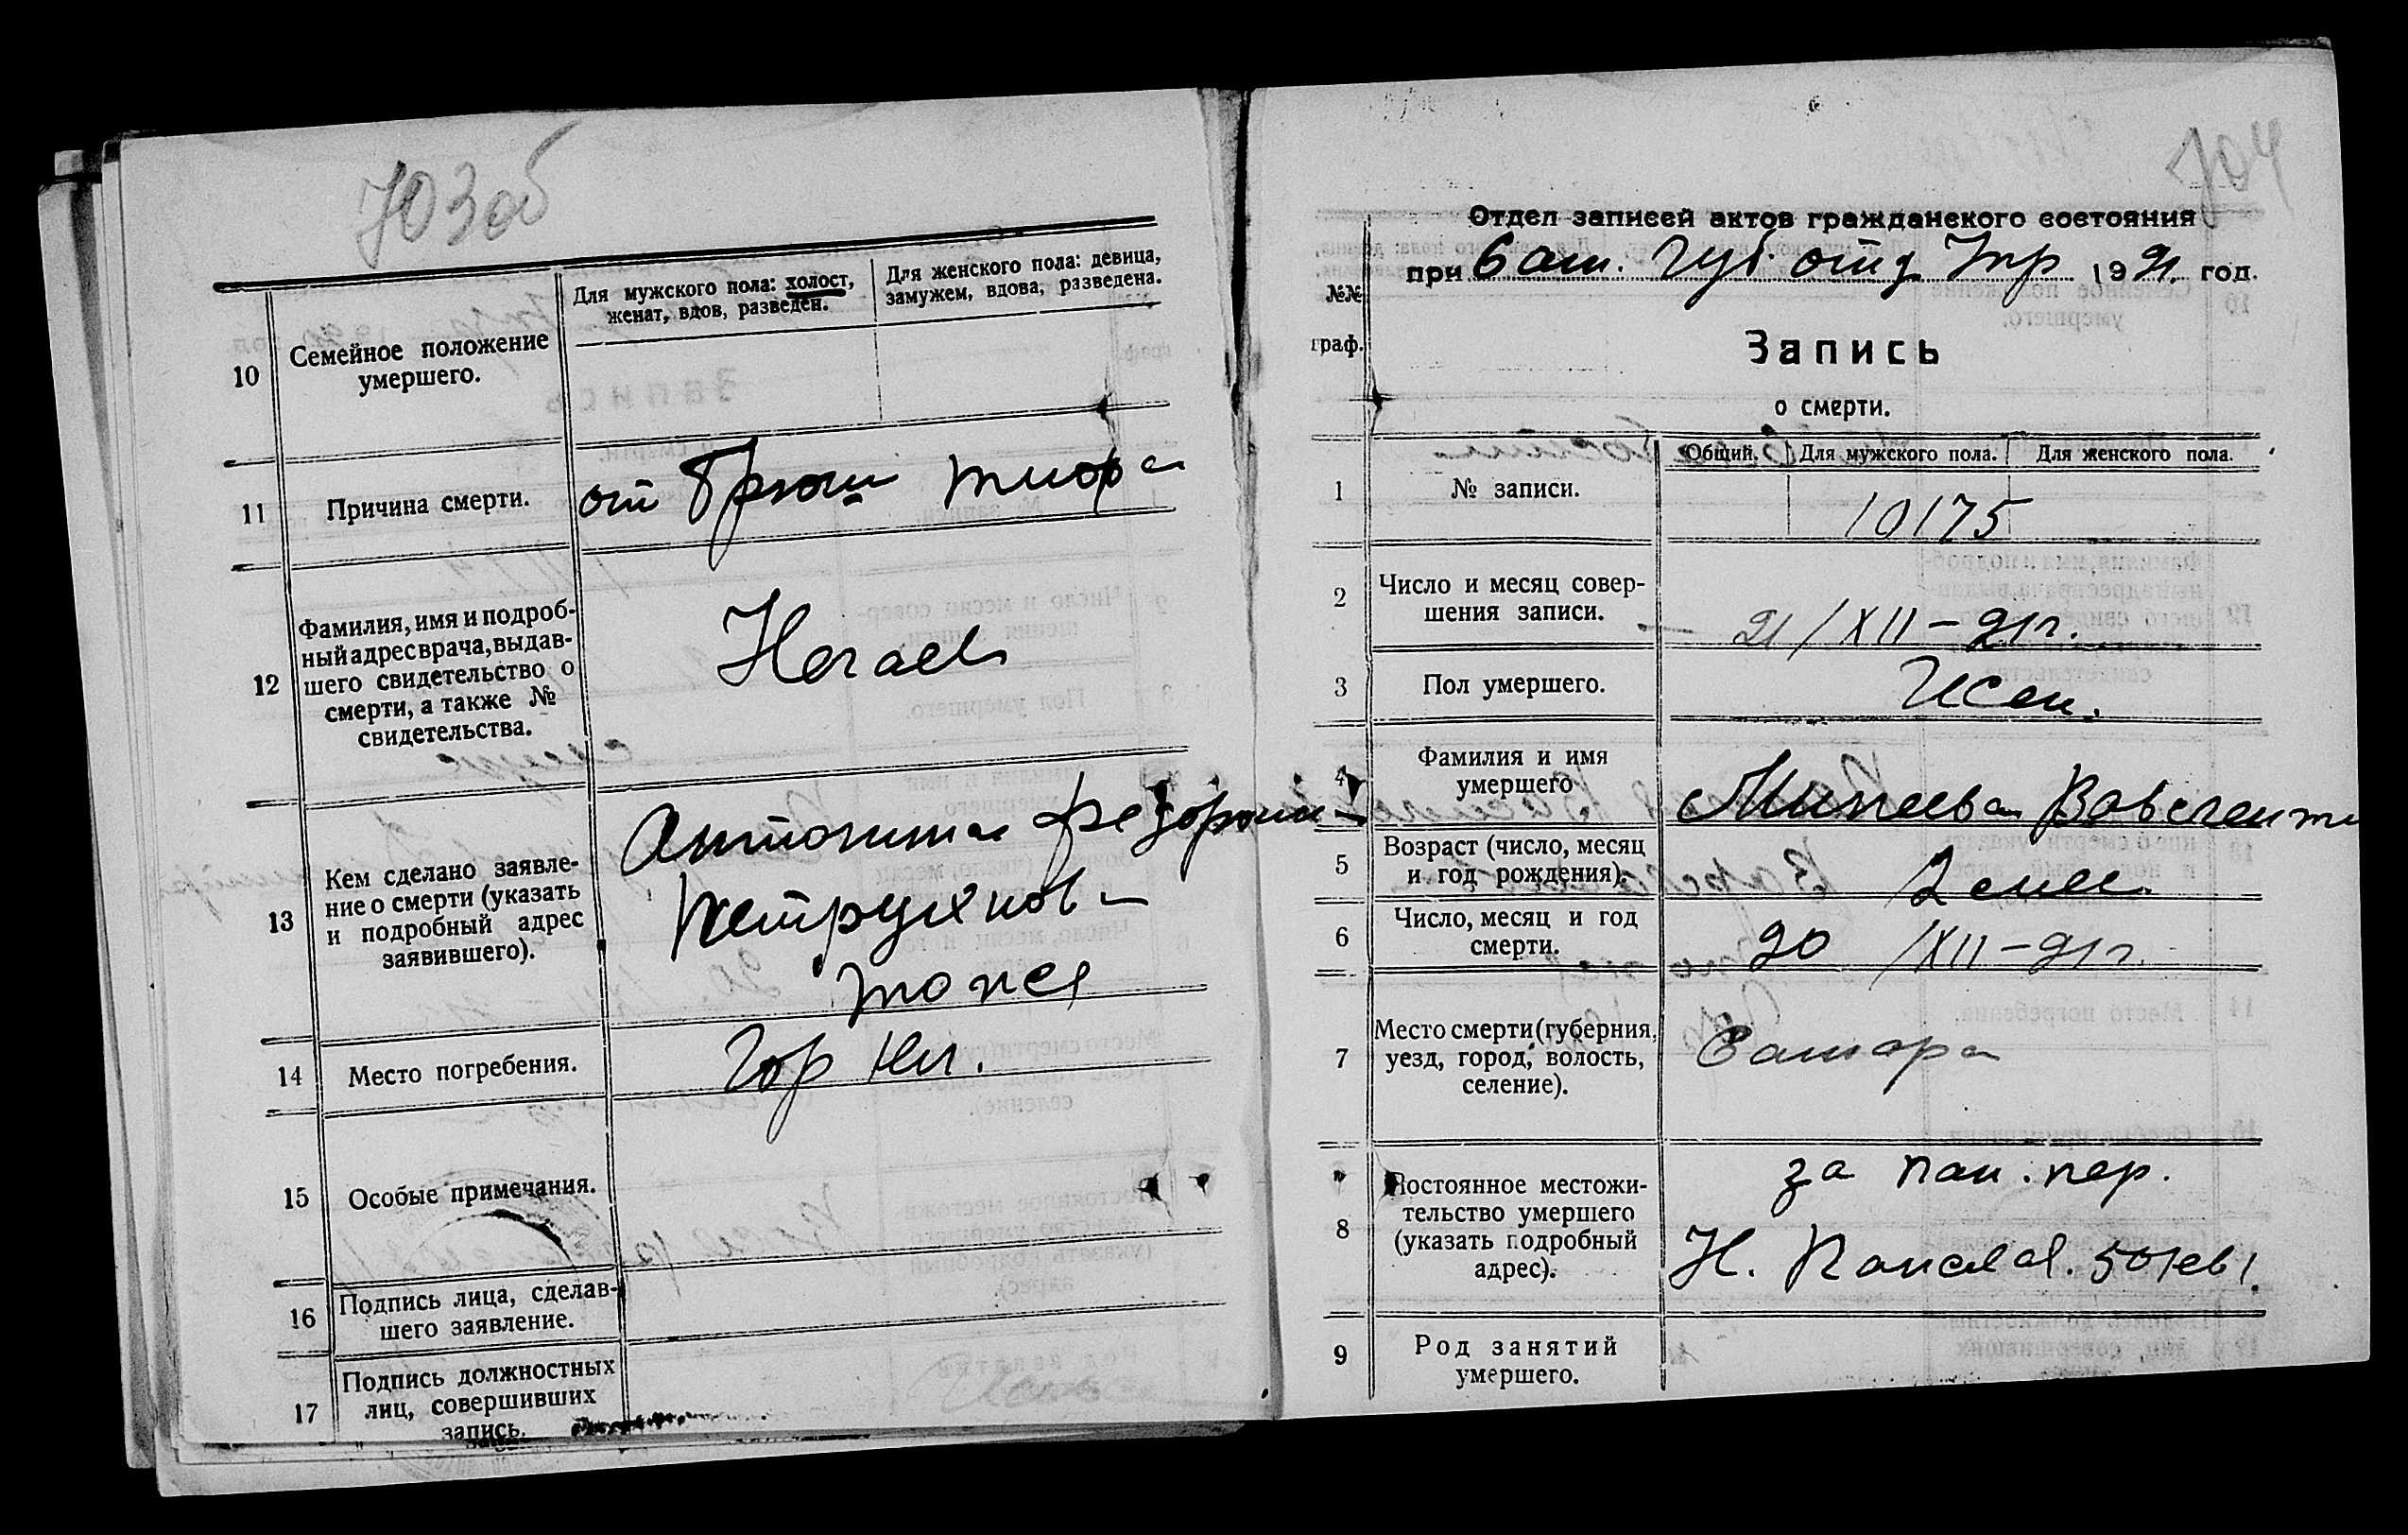 703об
10
Семейное положение
умершего.
Для мужского пола: холост,
женат, вдов, разведен.
Для женского пола: девица,
замужем, вдова, разведена.
11
Причина смерти.
от брюш тифа
12
Фамилия, имя и подроб-
ный адрес врача, выдав-
шего свидетельство о
смерти, а также №
свидетельства.
Ногаев
13
Кем сделано заявле-
ние о смерти (указать
и подробный адрес
заявившего).
Антонина Федоровна
Петрухнова
14
Место погребения.
Гор кл.
15
Особые примечания.
16
Подпись лица, сделав-
шего заявление.
17
Подпись должностных
лиц, совершивших
запись.
704
Отдел записей актов гражданского состояния
при Сам. Губ. отд Упр 1921 год.
№№
граф.
Запись
о смерти.
1
№ записи.
Общий.
Для мужского пола.
Для женского пола.
10175
2
Число и месяц совер-
шения записи.
21/XII-21г.
3
Пол умершего.
Жен.
4
Фамилия и имя
умершего
Минеева
5
Возраст (число, месяц
и год рождения).
2 мес.
6
Число, месяц и год
смерти.
20/XII-21г.
7
Место смерти (губерния,
уезд, город, волость,
селение).
Самара
8
Постоянное местожи-
тельство умершего
(указать подробный
адрес).
за пан. пер.
Н. 50 кв 1
9
Род занятий
умершего.